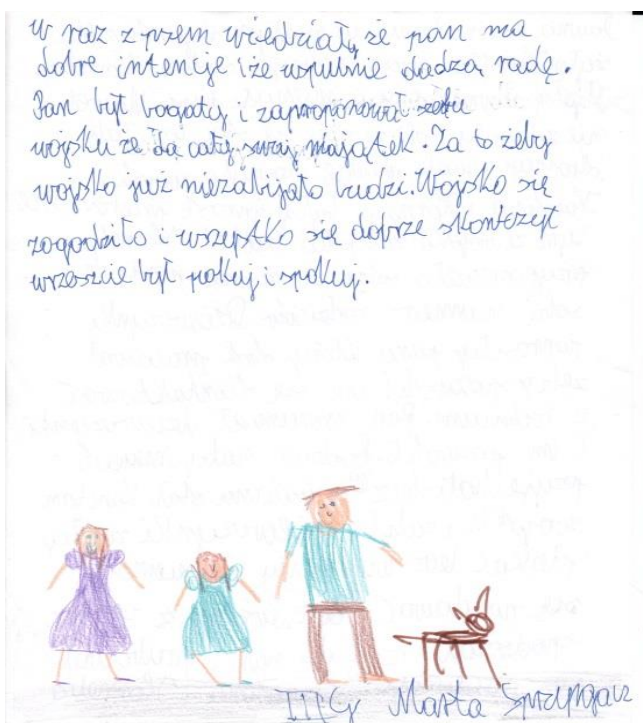 w raz z psem wiedziały, że pan ma
dobre intencje i że wspulnie dadzą radę.
Pan był bogaty i zaproponował
wojsku ze da cały swuj majątek. Za to żeby
wojsko już niezabijało ludzi. Wojsko się
zogodziło i wszystko się dobrze skontrzył
wrzeszcie był pokuj i spokuj.
III Cy Marta